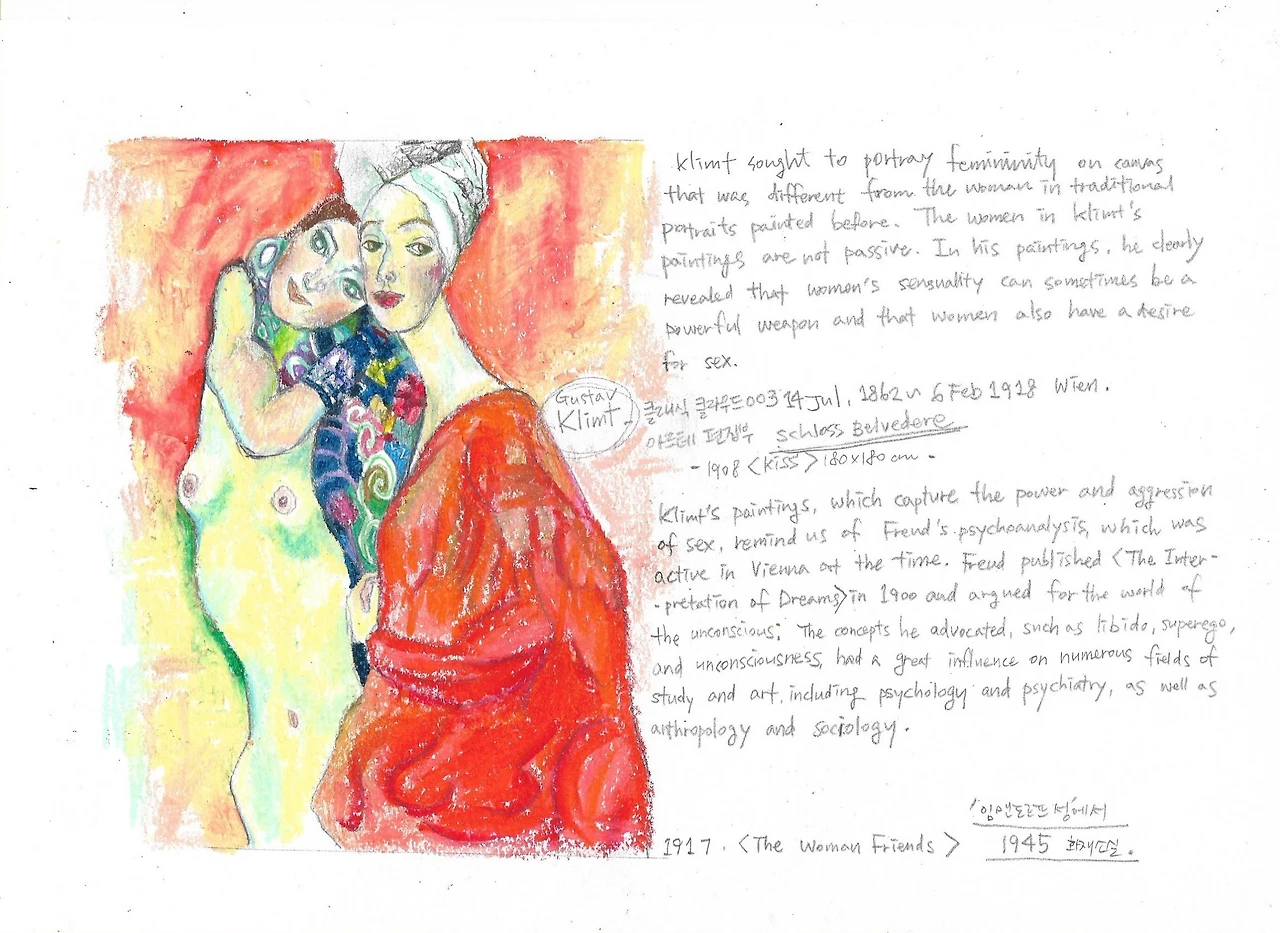 Klimt sought to portray femininity on canvas
that was different from the woman in traditional
portraits painted before. The women in Klimt's
paintings are not passive. In his paintings, he clearly
revealed that women's sensuality can sometimes be a
powerful weapon and that women also have a desire
for sex.
Gustav
Klimt
클래식 클라우드003 14 Jul, 1862 ~ 6 Feb 1918 Wien.
아르테 편집부 Schloss Belvedere
- 1908 <Kiss> 180x180cm -
Klimt's paintings, which capture the power and aggression
of sex, remind us of Freud's psychoanalysis, which was
active in Vienna at the time. Freud published <The Inter-
-pretation of Dreams> in 1900 and argued for the world of
the unconscious; The concepts he advocated, such as libido, superego,
and unconsciousness, had a great influence on numerous fields of
study and art, including psychology and psychiatry, as well as
anthropology and sociology.
'임멘도르프 성'에서
1917. <The Woman Friends> 1945 화재소실.